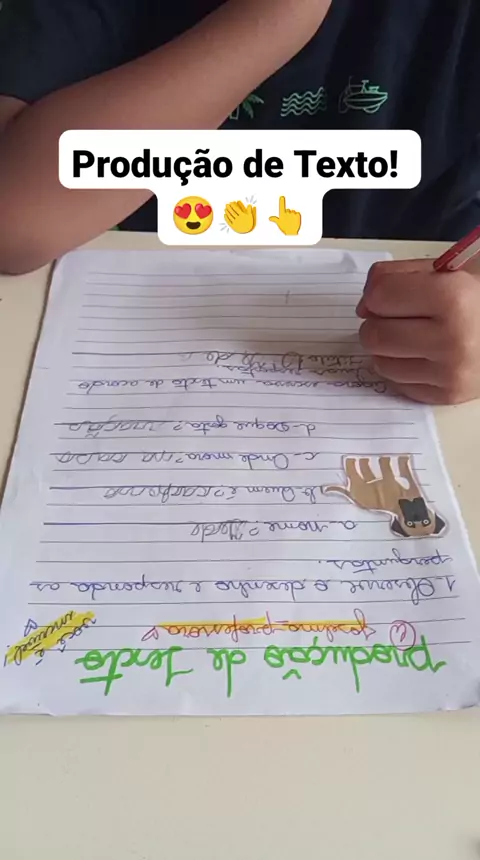 Produção de Texto!
😍👏👆
Produção de Texto
você é
incrível!
@ joselma=professora
1. Observe o desenho e responda as
perguntas.
a- nome?
b- Quem é? cachorro
c- Onde mora? na casa
d- Do que gosta? ração
Agora escreva um texto de acordo